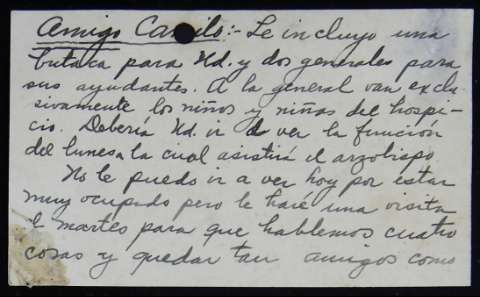 Amigo Camilo:- Le incluyo una
butaca para Ud. y dos generales para
sus ayudantes. A la general van exclu-
sivamente los niños y niñas del hospi-
cio. Debería Ud. ir a ver la función
del lunes a la cual asistirá el arzobispo
No le puedo ir a ver hoy por estar
muy ocupado pero le haré una visita
el martes para que hablemos cuatro
cosas y quedar tan amigos como